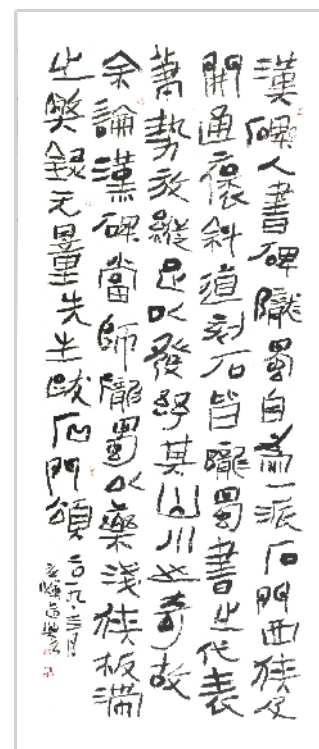 漢碑人書碑隴蜀自為一派石門西狹及
開通褒斜道刻石皆隴蜀書之代表
著勢放縱足以發舒其山川之奇故
余論漢碑當師隴蜀以藥淺狹板滿
之弊錄元量先生跋石門頌
二〇一九.三月